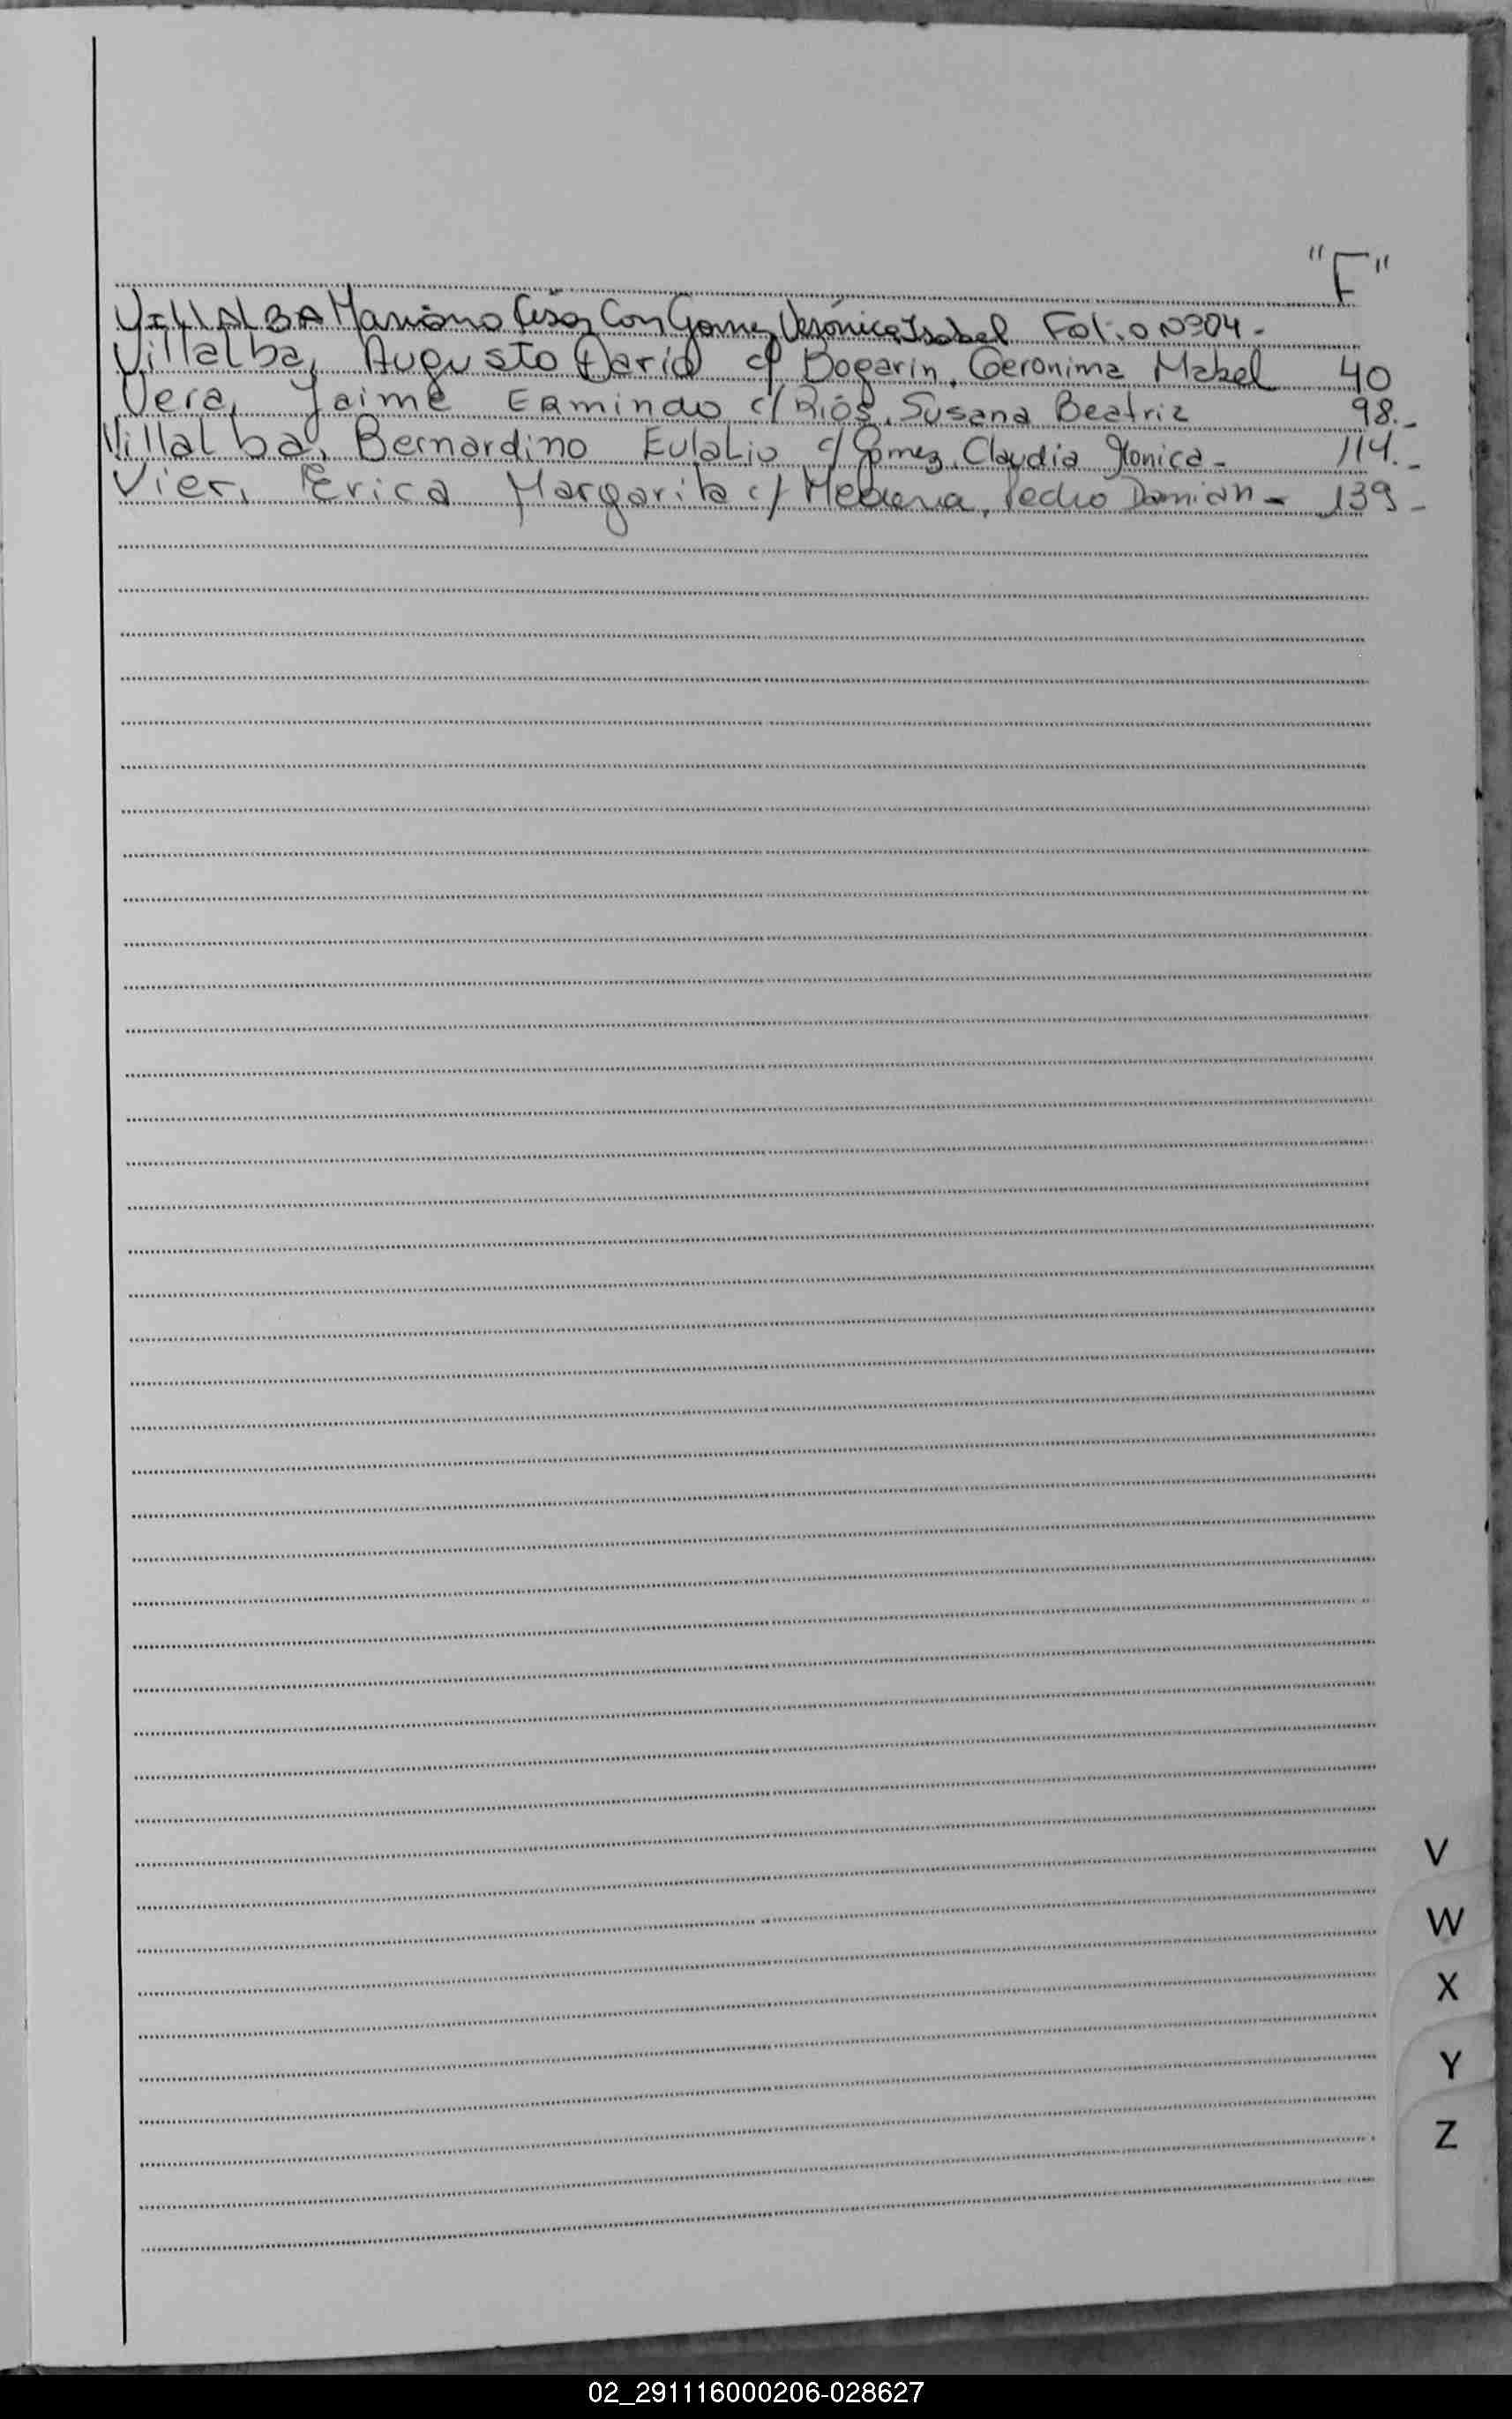 "F"
VILLALBA Mariano César Con Gomez Verónica Isabel Folio Nº 04-
Villalba, Augusto Dario c/ Bogarin, Geronima Mabel 40
Vera, Jaime Ermindo c/ Riós, Susana Beatriz 98.-
Villalba, Bernardino Eulalio c/ Gomez, Claudia Monica- 114.-
Vier, Erica Margarita c/ Pedro Damian- 139-
V
W
X
Y
Z
02_291116000206-028627